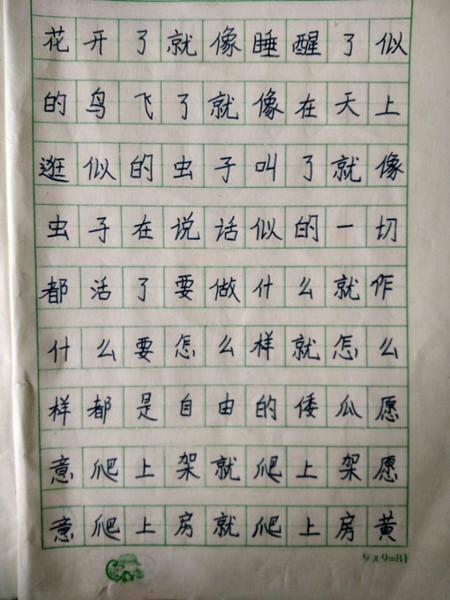 花开了就像睡醒了似
的鸟飞了就像在天上
逛似的虫子叫了就像
虫子在说话似的一切
都活了要做什么就作
什么要怎么样就怎么
样都是自由的倭瓜愿
意爬上架就爬上架愿
意爬上房就爬上房黄
9×9=81